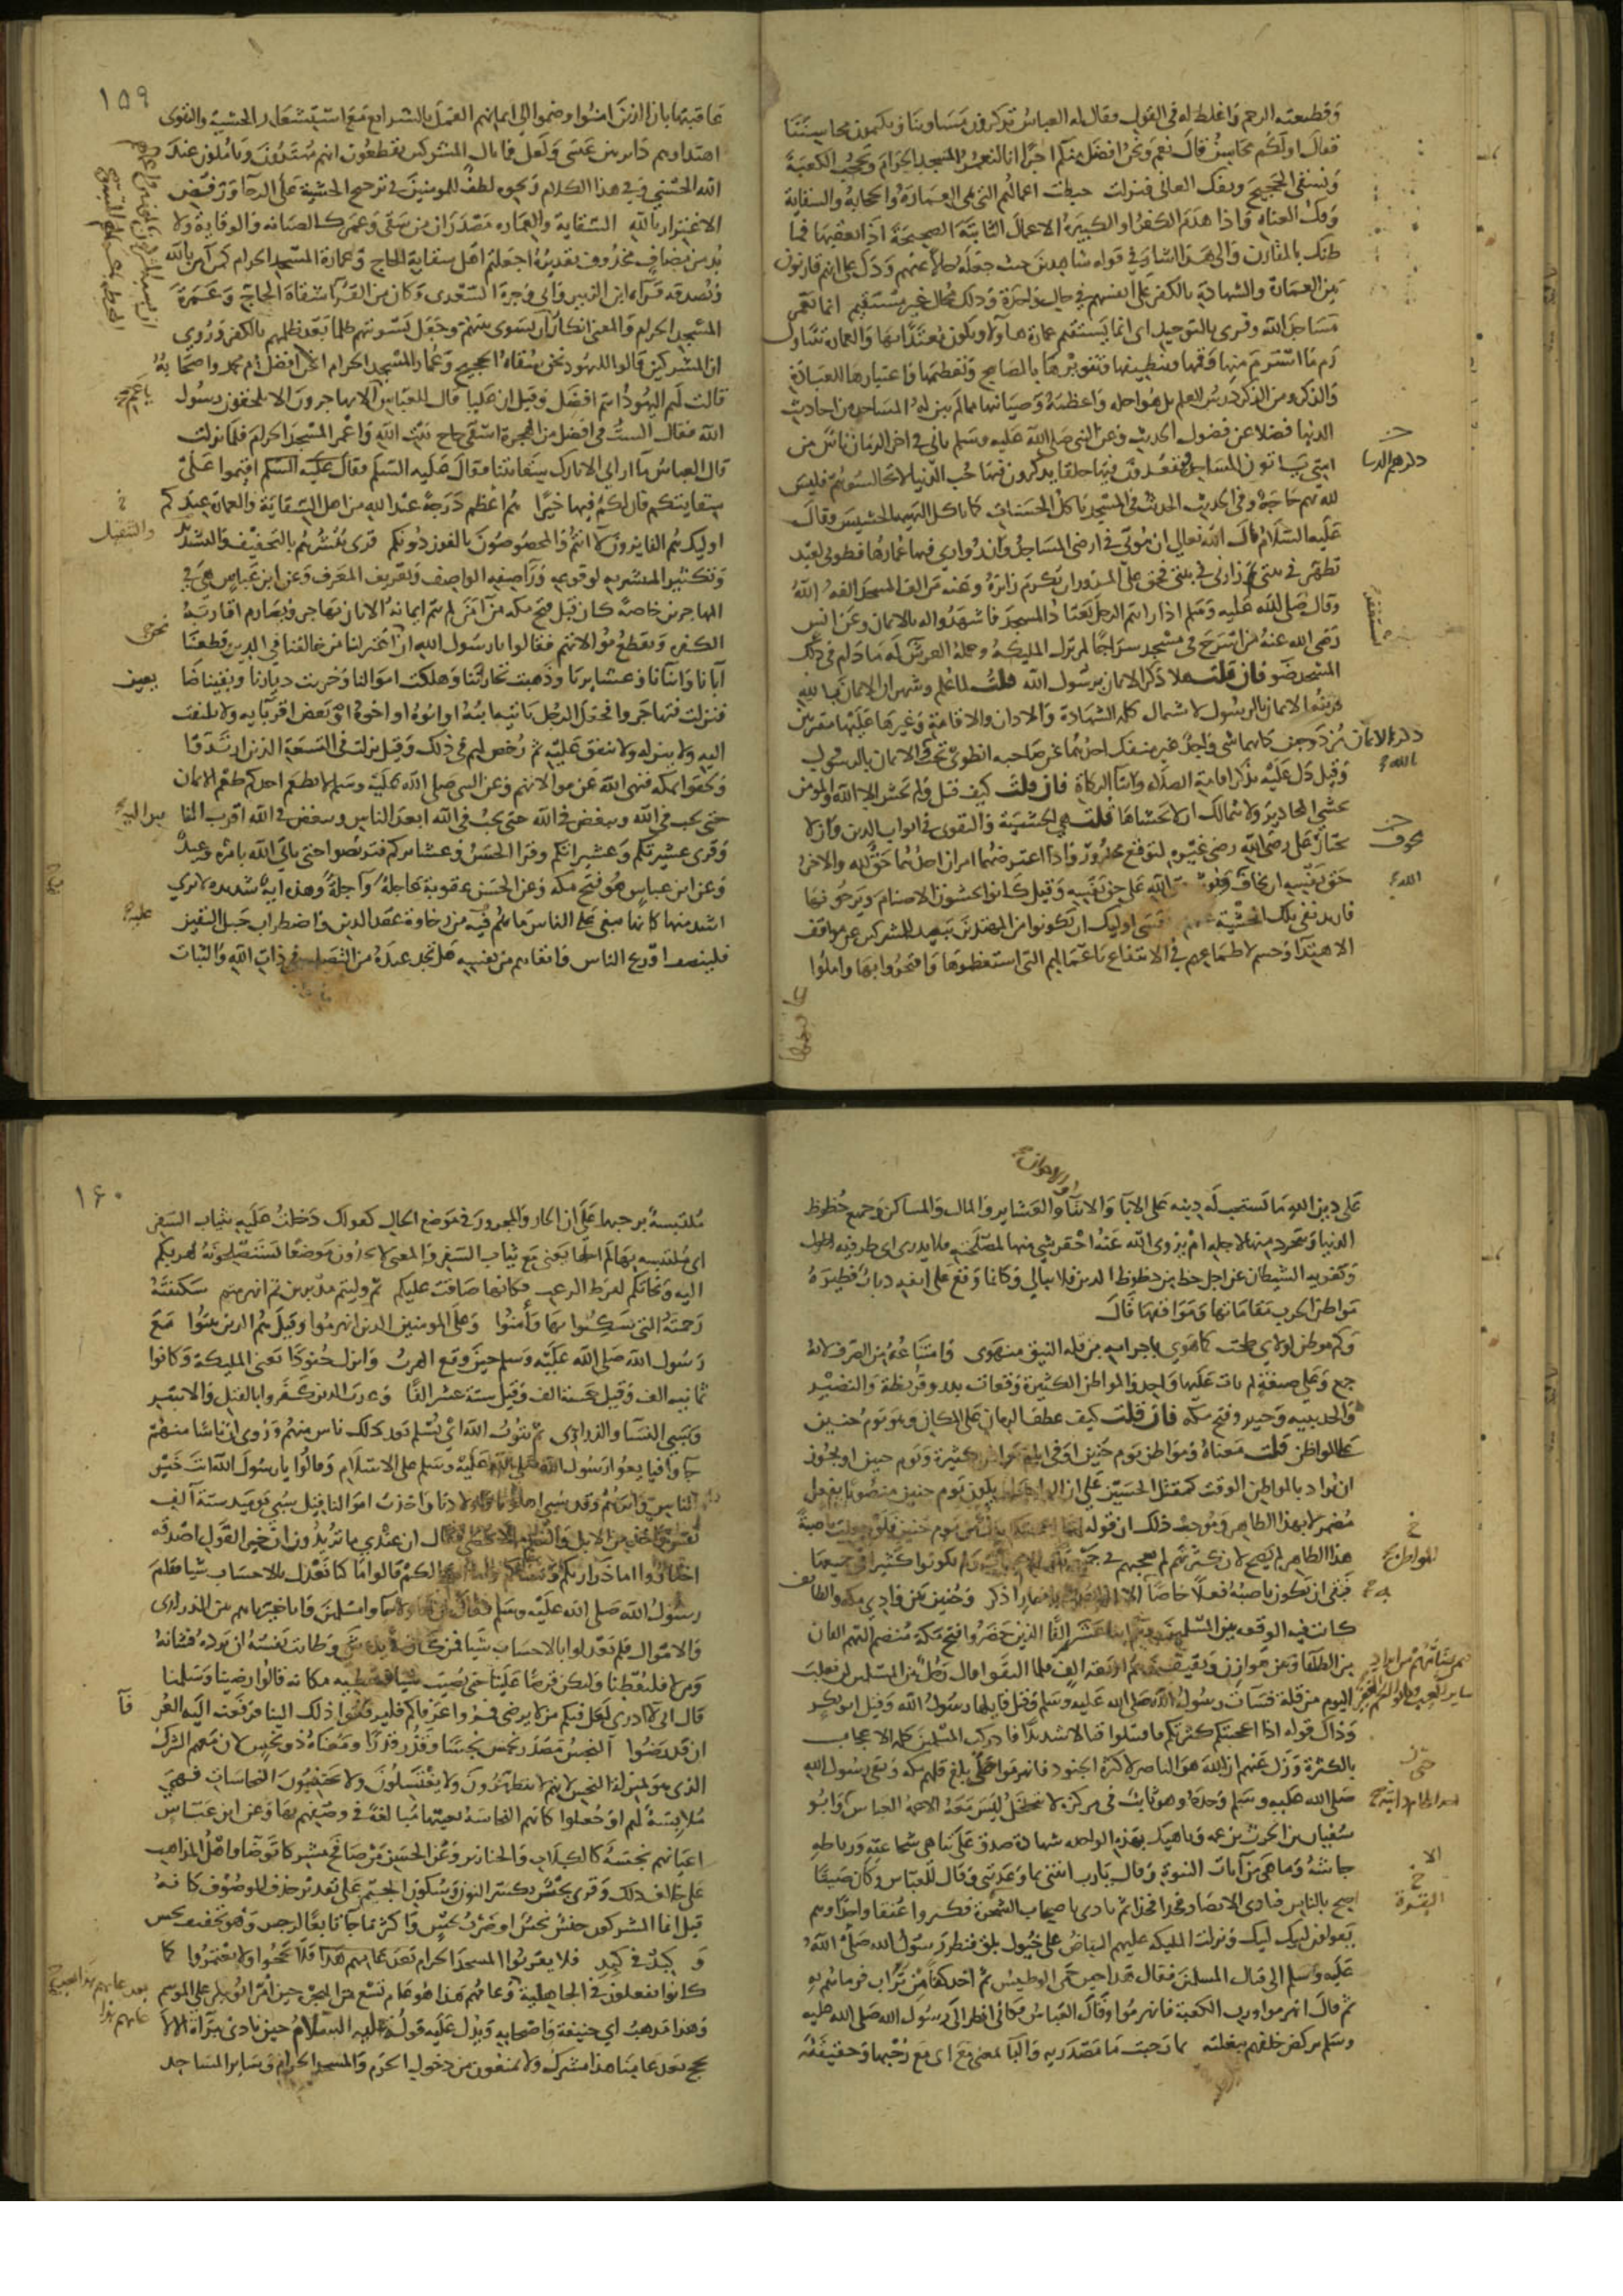 وقطيعته الرحم واغلظ له في القول فقال له العباس تذكرون مساوينا وتكتمون محاسننا
فقال اولكم محاسن قال نعم ونحن افضل منكم اجرا انا لنعمر المسجد الحرام ونحجب الكعبة
ونسقي الحجيج ونفك العاني فنزلت حبطت اعمالهم التي هي العمارة والحجابة والسقاية
وفك العناة واذا هدم الكفر او الكبيرة الاعمال الثابتة الصحيحة اذا تعقبها فما
ظنك بالمقارن والى هذا اشار في قوله شاهدين حيث جعله حالا عنهم ودل على انهم قارنون
بين العمارة والشهادة بالكفر على انفسهم في حال واحدة وذلك محال غير مستقيم انما يعمر
مساجد الله وقرى بالتوحيد اي انما يستقيم عمارة هاولا ويكون معتدا بها والعمارة تتناول
رم ما استرم منها وقمها وتنظيفها وتنويرها بالمصابيح وتعظيمها واعتيادها للعبادة
والذكر ومن الذكر درس العلم بل هو اجله واعظمه وصيانتها مما لم تبن له المساجد من احاديث
الدنيا فضلا عن فضول الحديث وعن النبي صلى الله عليه وسلم ياتي في اخر الزمان ناس من
امتي ياتون المساجد فيقعدون فيها حلقا يذكرون فيها حب الدنيا لا تجالسوهم فليس
ذكرهم الدنيا
لله بهم حاجة وفي الحديث الحديث في المسجد ياكل الحسنات كما تاكل البهيمة الحشيش وقال
عليه السلام قال الله تعالى ان بيوتي في ارضي المساجد وان زواري فيها عمارها فطوبى لعبد
تطهر في بيته ثم زارني في بيتي فحق على المزور ان يكرم زائره وعنه من الف المسجد الفه الله
وقال صلى الله عليه وسلم اذا رايتم الرجل يعتاد المسجد فاشهدوا له بالايمان وعن انس
رضي الله عنه من اسرج في مسجد سراجا لم تزل المليكة وحملة العرش له ما دام في ذلك
المسجد ضو فان قلت هلا ذكر الايمان برسول الله قلت لما علم وشهر ان الايمان بالله
قرينته الايمان بالرسول لاشتمال كلمة الشهادة والاذان والاقامة وغيرها عليهما مقترنين
مزدوجين كانهما شي واحد غير منفك احدهما عن صاحبه انطوى تحت الايمان بالرسول
وقيل دل عليه بذكر اقامة الصلاه وايتا الزكاة فان قلت كيف قيل ولم يخش الا الله والمومن
يخشى المحاذير ولا يتمالك ان لا يخشاها قلت هي الخشية والتقوى في ابواب الدين وان لا
يختار على رضى الله رضى غيره لتوقع مخوف واذا اعترضه امران احدهما حق لله والاخر
حق نفسه ان يخاف الله على حق نفسه وقيل كانوا يخشون الاصنام ويرجونها
فاريد نفي تلك الخشية عنهم فعسى اوليك ان يكونوا من المهتدين تبعيد للمشركين عن مواقف
الاهتدا وحسم لاطماعهم في الانتفاع باعمالهم التي استعظموها وافتخروا بها واملوا
عاقبتها
١٥٩
عاقبتها بان الذين امنوا وضموا الى ايمانهم العمل بالشرايع مع استشعار الخشية والتقوى
اهتداوهم داير بين عسى ولعل فما بال المشركين يقطعون انهم مهتدون ونائلون عند
الله الحسنى وفي هذا الكلام ونحوه لطف للمومنين في ترجيح الخشية على الرجا ورفض
الاغترار بالله السقاية والعمارة مصدران من سقى وعمر كالصيانة والوقاية ولا
بد من مضاف محذوف تقديره اجعلتم اهل سقاية الحاج وعمارة المسجد الحرام كمن آمن بالله
وتصدقه قراءة ابن الزبير وابي وجزة السعدي وكان من القرآ سقاة الحاج وعمرة
المسجد الحرام والمعنى انكار ان يسوى بينهم وجعل تسويتهم ظلما بعد ظلمهم بالكفر وروي
ان المشركين قالوا لليهود نحن سقاة الحجيج وعمار المسجد الحرام افنحن افضل ام محمد واصحابه
قالت لهم اليهود انتم افضل وقيل ان عليا قال للعباس الا تهاجرون الا تلحقون برسول
يا عم
الله فقال الست في افضل من الهجرة اسقي حاج بيت الله واعمر المسجد الحرام فلما نزلت
قال العباس ما اراني الا تارك سقايتنا فقال عليه السلم اقيموا على
سقايتكم فان لكم فيها خيرا هم اعظم درجة عند الله من اهل السقاية والعمارة عندكم
اوليك هم الفائزون لا انتم والمخصوصون بالفوز دونكم قرى يبشرهم بالتخفيف والتشديد
والتثقيل
وتنكير المبشر به لوقوعه ورآ صفة الواصف وتعريف المعرف وعن ابن عباس هي في
المهاجرين خاصة كان قبل فتح مكه من آمن لم يتم ايمانه الا بان يهاجر ويصارم اقاربه
الكفره ويقطع موالاتهم فقالوا يا رسول الله ان نحن اعتزلنا من خالفنا في الدين قطعنا
نحن
آبانا وابنآنا وعشايرنا وذهبت تجاراتنا وهلكت اموالنا وخربت ديارنا وبقينا ضا
يعين
فنزلت فهاجروا فجعل الرجل ياتيه ابنه او ابوه او اخوه او بعض اقربايه ولا يلتفت
اليه ولا ينزله ولا ينفق عليه ثم رخص لهم في ذلك وقيل نزلت في التسعة الذين ارتدوا
ولحقوا بمكه فنهى الله عن موالاتهم وعن النبي صلى الله عليه وسلم لا يطعم احدكم طعم الايمان
حتى يحب في الله ويبغض في الله حتى يحب في الله ابعد الناس ويبغض في الله اقرب الناس
وقرى عشيرتكم وعشيراتكم وقرا الحسن وعشايركم فتربصوا حتى ياتي الله بامره وعيد
وعن ابن عباس هو فتح مكه وعن الحسن عقوبة عاجلة او آجلة وهذه آية شديدة لا ترى
اشد منها كانها تنعى على الناس ما هم فيه من رخاوة عقد الدين واضطراب حبل اليقين
عليه
فلينصف اورع الناس واتقاهم من نفسه هل يجد عنده من التصلب في ذات الله والثبات
على دين الله ما تستحب له دينه على الابا والابنآ والعشاير والمال والمساكن وجميع حظوظ
الدنيا ويتجرد منها لاجله ام يزوى الله عنه احقر شي منها لمصلحته فلا يدري اي طرفيه اطول
ويغويه الشيطان عن اجل حظ من حظوظ الدين فلا يبالي وكانما وقع على انفه ذباب فطيره
مواطن الحرب مقاماتها ومواقفها قال
وكم موطن لولاي طحت كما هوى باجرامه من قلة النيق منهوى وامتناعه من الصرف لانه
جمع وعلى صيغة لم يات عليها واحد والمواطن الكثيرة وقعات بدر وقريظة والنضير
والحديبيه وخيبر وفتح مكه فان قلت كيف عطف الزمان على المكان وهو يوم حنين
على المواطن قلت معناه وموطن يوم حنين او في ايام مواطن كثيرة ويوم حنين او يجوز
ان يراد بالمواطن الوقت كمقتل الحسين على ان الواجب ان يكون يوم حنين منصوبا بفعل
مضمر لا بهذا الظاهر وموجب ذلك ان قوله اذ اعجبتكم بدل من يوم حنين فلو جعلت ناصبة
هذا الظاهر لم يصح لان كثرتهم لم تعجبهم في جميع تلك المواطن ولم يكونوا كثيرا في جميعها
فبقي ان يكون ناصبه فعلا خاصا به الا اذا نصبت اذ باضمار اذكر وحنين بين وادي مكه والطائف
كانت فيه الوقعه بين المسلمين وهم اثنا عشر الفا الذين حضروا فتح مكة منضم اليهم الفان
من الطلقا وبين هوازن وثقيف وهم اربعة الف فلما التقوا قال رجل من المسلمين لن نغلب
اليوم من قلة فسآت رسول الله صلى الله عليه وسلم وقيل قايلها رسول الله وقيل ابو بكر
وذلك قوله اذ اعجبتكم كثرتكم فاقتتلوا قتالا شديدا فادركت المسلمين كلمة الاعجاب
بالكثرة وزل عنهم ان الله هو الناصر لا كثرة الجنود فانهزموا حتى بلغ فلهم مكه وبقي رسول الله
صلى الله عليه وسلم وحده وهو ثابت في مركزه لا يتحلحل ليس معه الا عمه العباس وابو
سفيان بن الحرث بن عمه وناهيك بهذه الواحده شهادة صدق على تناهي شجاعته ورباطه
جاشه وما هي من آيات النبوة وقال يا رب ائتني بما وعدتني وقال للعباس وكان صيتا
صح بالناس فنادى الانصار فخذا فخذا ثم نادى يا اصحاب الشجرة فكروا عنقا واحدا وهم
يقولون لبيك لبيك ونزلت المليكه عليهم البياض على خيول بلق فنظر رسول الله صلى الله
عليه وسلم الى قتال المسلمين فقال هذا حين حمي الوطيس ثم اخذ كفا من تراب فرماهم به
ثم قال انهزموا ورب الكعبة فانهزموا وقال العباس فكاني انظر الى رسول الله صلى الله عليه
وسلم يركض خلفهم ببغلته بما رحبت ما مصدريه والبا بمعنى مع اي مع رحبها وحقيقته
١٦٠
ملتبسة برحبها على ان الجار والمجرور في موضع الحال كقولك دخلت عليه بثياب السفر
اي ملتبسا بها لم احلها يعني مع ثياب السفر والمعنى لا تجدون موضعا تستصلحونه لهربكم
اليه ونجاتكم لفرط الرعب فكانها ضاقت عليكم ثم وليتم مدبرين ثم انهزمتم سكينته
رحمته التي يسكنوا بها وآمنوا وعلى المومنين الذين انهزموا وقيل هم الذين ثبتوا مع
رسول الله صلى الله عليه وسلم حين وقع الهرب وانزل جنودا يعني المليكة وكانوا
ثمانيه الف وقيل خمسة الف وقيل ستة عشر الفا وعذب الذين كفروا بالقتل والاسر
وسبي النسا والذراري ثم يتوب الله اي يسلم بعد ذلك ناس منهم وروى ان ناسا منهم
جآوا فبايعوا رسول الله صلى الله عليه وسلم على الاسلام وقالوا يا رسول الله انت خير
الناس وابرهم وقد سبي اهلونا واولادنا واخذت اموالنا قيل سبي يوميذ ستة آلف
نفس واخذ من الابل والغنم ما لا يحصى فقال ان عندي ما ترون ان خير القول اصدقه
اختاروا اما ذراريكم ونساكم واما اموالكم قالوا ما كنا نعدل بالاحساب شيا فقام
رسول الله صلى الله عليه وسلم فقال ان هاولا جاوا مسلمين وانا خيرناهم بين الذراري
والاموال فلم يعدلوا بالاحساب شيا فمن كان بيده شي وطابت نفسه ان يرده فشانه
ومن لا فليعطنا وليكن قرضا علينا حتى نصيب شيا فنعطيه مكانه قالوا رضينا وسلمنا
قال اني لا ادري لعل فيكم من لا يرضى فمروا عرفاكم فليرفعوا ذلك الينا فرفعت اليه العرفآ
ان قد رضوا النجس مصدر نجس نجسا وقذر قذرا ومعناه ذو نجس لان معهم الشرك
الذي هو بمنزلة النجس ولانهم لا يتطهرون ولا يغتسلون ولا يجتنبون النجاسات فهي
ملابسة لهم او جعلوا كانهم النجاسة بعينها مبالغة في وصفهم بها وعن ابن عباس
اعيانهم نجسة كالكلاب والخنازير وعن الحسن من صافح مشركا توضا واهل المذاهب
على خلاف ذلك وقرى نجس بكسر النون وسكون الجيم على تقدير حذف الموصوف كانه
قيل انما المشركون جنس نجس او ضرب نجس واكثر ما جآ تابعا لرجس وهو تخفيف نجس
و كبد في كبد فلا يقربوا المسجد الحرام بعد عامهم هذا فلا يحجوا ولا يعتمروا كما
كانوا يفعلون في الجاهلية وعامهم هذا هو عام تسع من الهجرة حين امر ابو بكر على الموسم
وهذا مذهب ابي حنيفة واصحابه ويدل عليه قوله عليه السلام حين نادى ببراة الا لا
يحج بعد عامنا هذا مشرك ولا يمنعون من دخول الحرم والمسجد الحرام وساير المساجد